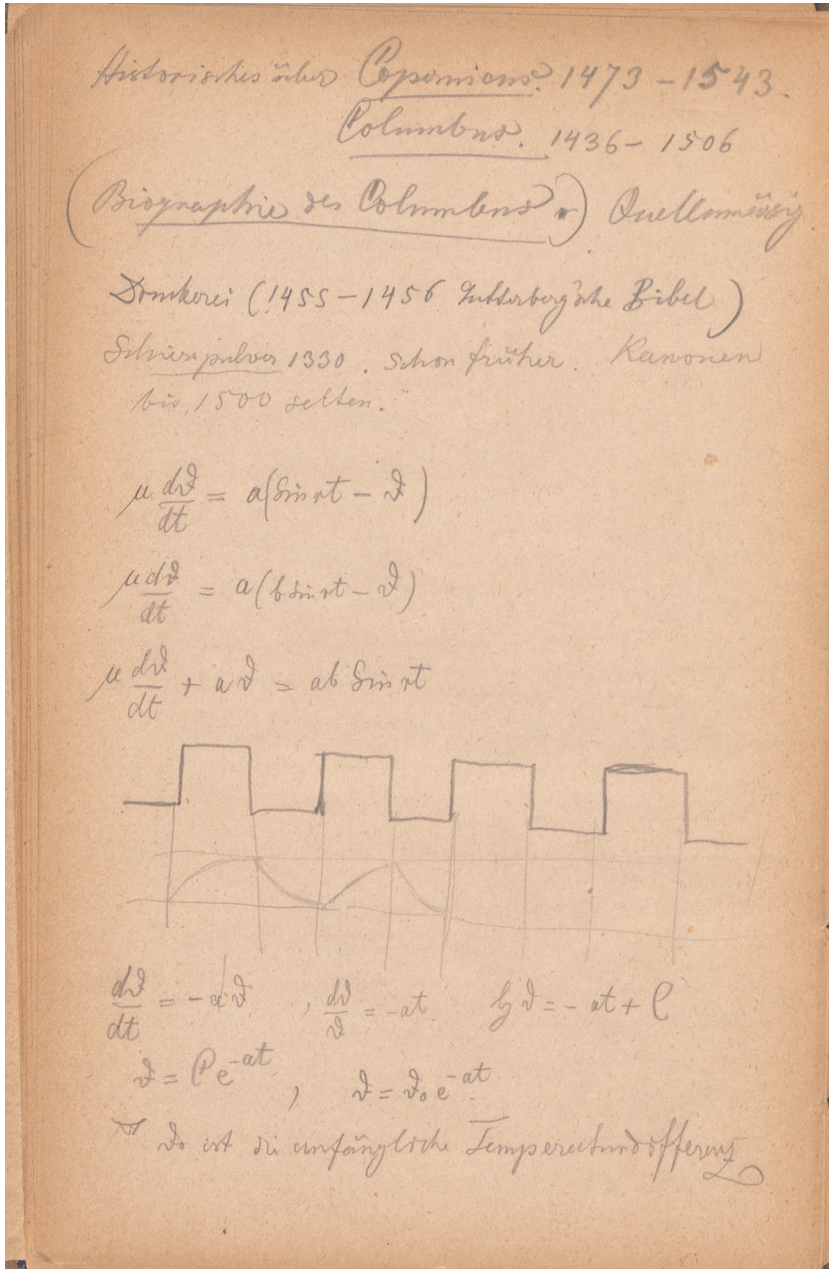 Historisches über Copernicus. 1473 – 1543.
Columbus. 1436 – 1506
(Biographie des Columbus.) Quellenmässig
Druckerei (1455 – 1456 Guttenberg'sche Bibel)
Schiesspulver 1330. schon früher. Kanonen
bis 1500 selten.
μ dϑ/dt = a(sin rt – ϑ)
μ dϑ/dt = a(b sin rt – ϑ)
μ dϑ/dt + aϑ = ab sin rt
dϑ/dt = –aϑ , dϑ/ϑ = –at. lg ϑ = – at + C
ϑ = C e^-at , ϑ = ϑ₀ e^-at.
ϑ₀ ist die anfängliche Temperaturdifferenz